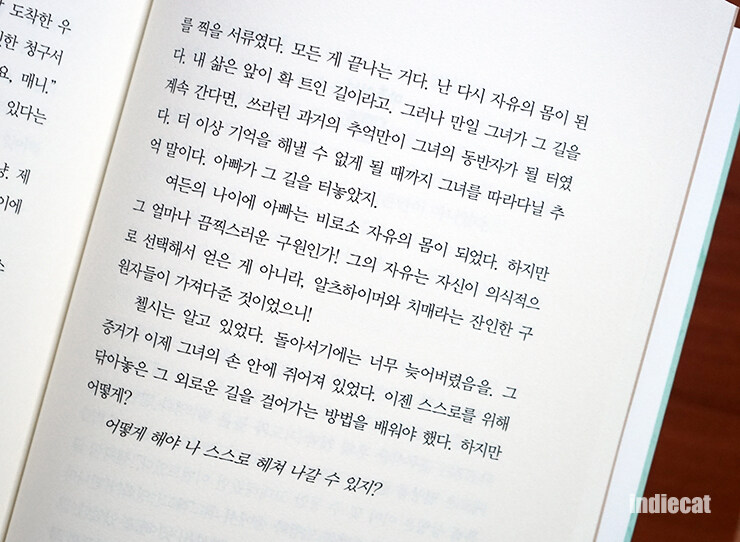 도착한 우
한 청구서
요, 매니.”
있다는
제
이에
를 찍을 서류였다. 모든 게 끝나는 거다. 난 다시 자유의 몸이 된
다. 내 삶은 앞이 확 트인 길이라고. 그러나 만일 그녀가 그 길을
계속 간다면, 쓰라린 과거의 추억만이 그녀의 동반자가 될 터였
다. 더 이상 기억을 해낼 수 없게 될 때까지 그녀를 따라다닐 추
억 말이다. 아빠가 그 길을 터놓았지.
여든의 나이에 아빠는 비로소 자유의 몸이 되었다. 하지만
그 얼마나 끔찍스러운 구원인가! 그의 자유는 자신이 의식적으
로 선택해서 얻은 게 아니라, 알츠하이머와 치매라는 잔인한 구
원자들이 가져다준 것이었으니!
첼시는 알고 있었다. 돌아서기에는 너무 늦어버렸음을. 그
증거가 이제 그녀의 손 안에 쥐어져 있었다. 이젠 스스로를 위해
닦아놓은 그 외로운 길을 걸어가는 방법을 배워야 했다. 하지만
어떻게?
어떻게 해야 나 스스로 헤쳐 나갈 수 있지?
indiecat